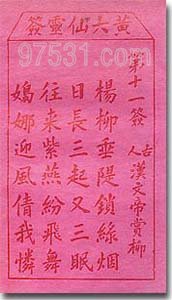 黃大仙靈簽
97531.com
第十一簽
古人 漢文帝賞柳
楊柳垂隄鎖絲烟
日長三起又三眠
往來紫燕紛飛舞
嫋娜迎風倩我憐